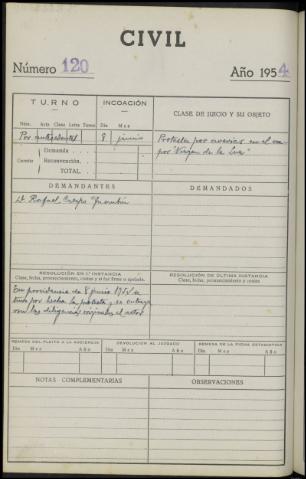 CIVIL
Número 120
Año 1954
TURNO
INCOACIÓN
CLASE DE JUICIO Y SU OBJETO
Núm. Acta Clase Letra Tomo Día Mes
Por antecedentes 8 junio
Protesta por averías en el va-
por "Virgen de la
Cuantía
Demanda
Reconvención
TOTAL
DEMANDANTES
DEMANDADOS
D. Rafael Crespo
RESOLUCIÓN EN 1.ª INSTANCIA
RESOLUCIÓN DE ÚLTIMA INSTANCIA
Clase, fecha, pronunciamiento y costas
En providencia de 8 junio 1954 se
tuvo por hecha la protesta y se entrega-
ron las diligencias originales al actor
REMESA DEL PLEITO A LA AUDIENCIA
DEVOLUCIÓN AL JUZGADO
REMESA DE LA FICHA ESTADÍSTICA
Día Mes Año
Día Mes Año
Día Mes Año
NOTAS COMPLEMENTARIAS
OBSERVACIONES